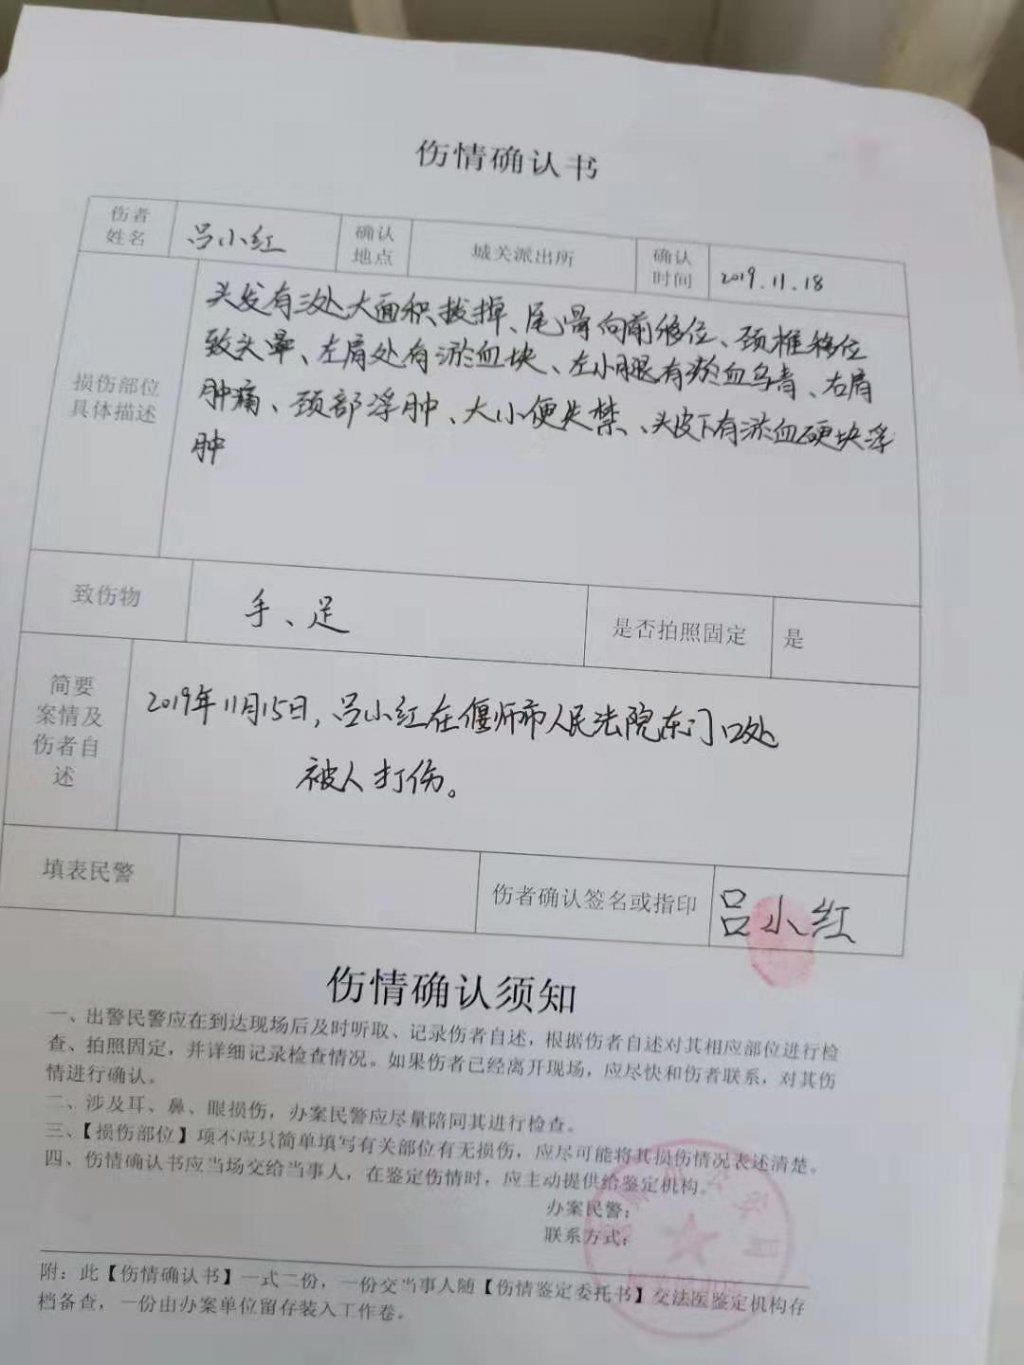 伤情确认书
伤者姓名 吕小红 确认地点 城关派出所 确认时间 2019.11.18
损伤部位具体描述
头发有三处大面积拔掉、尾骨向前移位、颈椎移位
致头晕、左肩处有淤血块、左小腿有瘀血乌青、右肩
肿痛、颈部浮肿、大小便失禁、头皮下有淤血硬块浮
肿
致伤物 手、足 是否拍照固定 是
简要案情及伤者自述
2019年11月15日,吕小红在偃师市人民法院东门口处
被人打伤。
填表民警 伤者确认签名或指印 吕小红
伤情确认须知
一、出警民警应在到达现场后及时听取、记录伤者自述，根据伤者自述对其相应部位进行检
查、拍照固定，并详细记录检查情况。如果伤者已经离开现场，应尽快和伤者联系，对其伤
情进行确认。
二、涉及耳、鼻、眼损伤，办案民警应尽量陪同其进行检查。
三、【损伤部位】项不应只简单填写有关部位有无损伤，应尽可能将其损伤情况表述清楚。
四、伤情确认书应当场交给当事人，在鉴定伤情时，应主动提供给鉴定机构。
办案民警：
联系方式：
附：此【伤情确认书】一式二份，一份交当事人随【伤情鉴定委托书】交法医鉴定机构存
档备查，一份由办案单位留存装入工作卷。